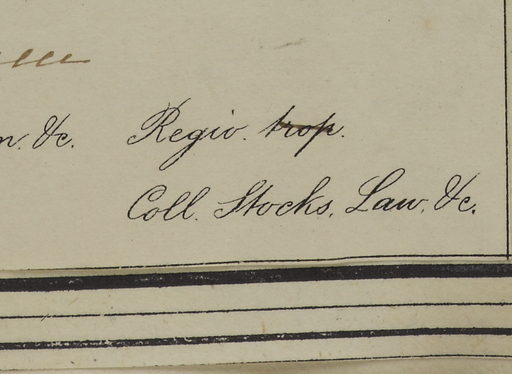 n. &c. Regio. trop.
Coll. Stocks, Law, &c.